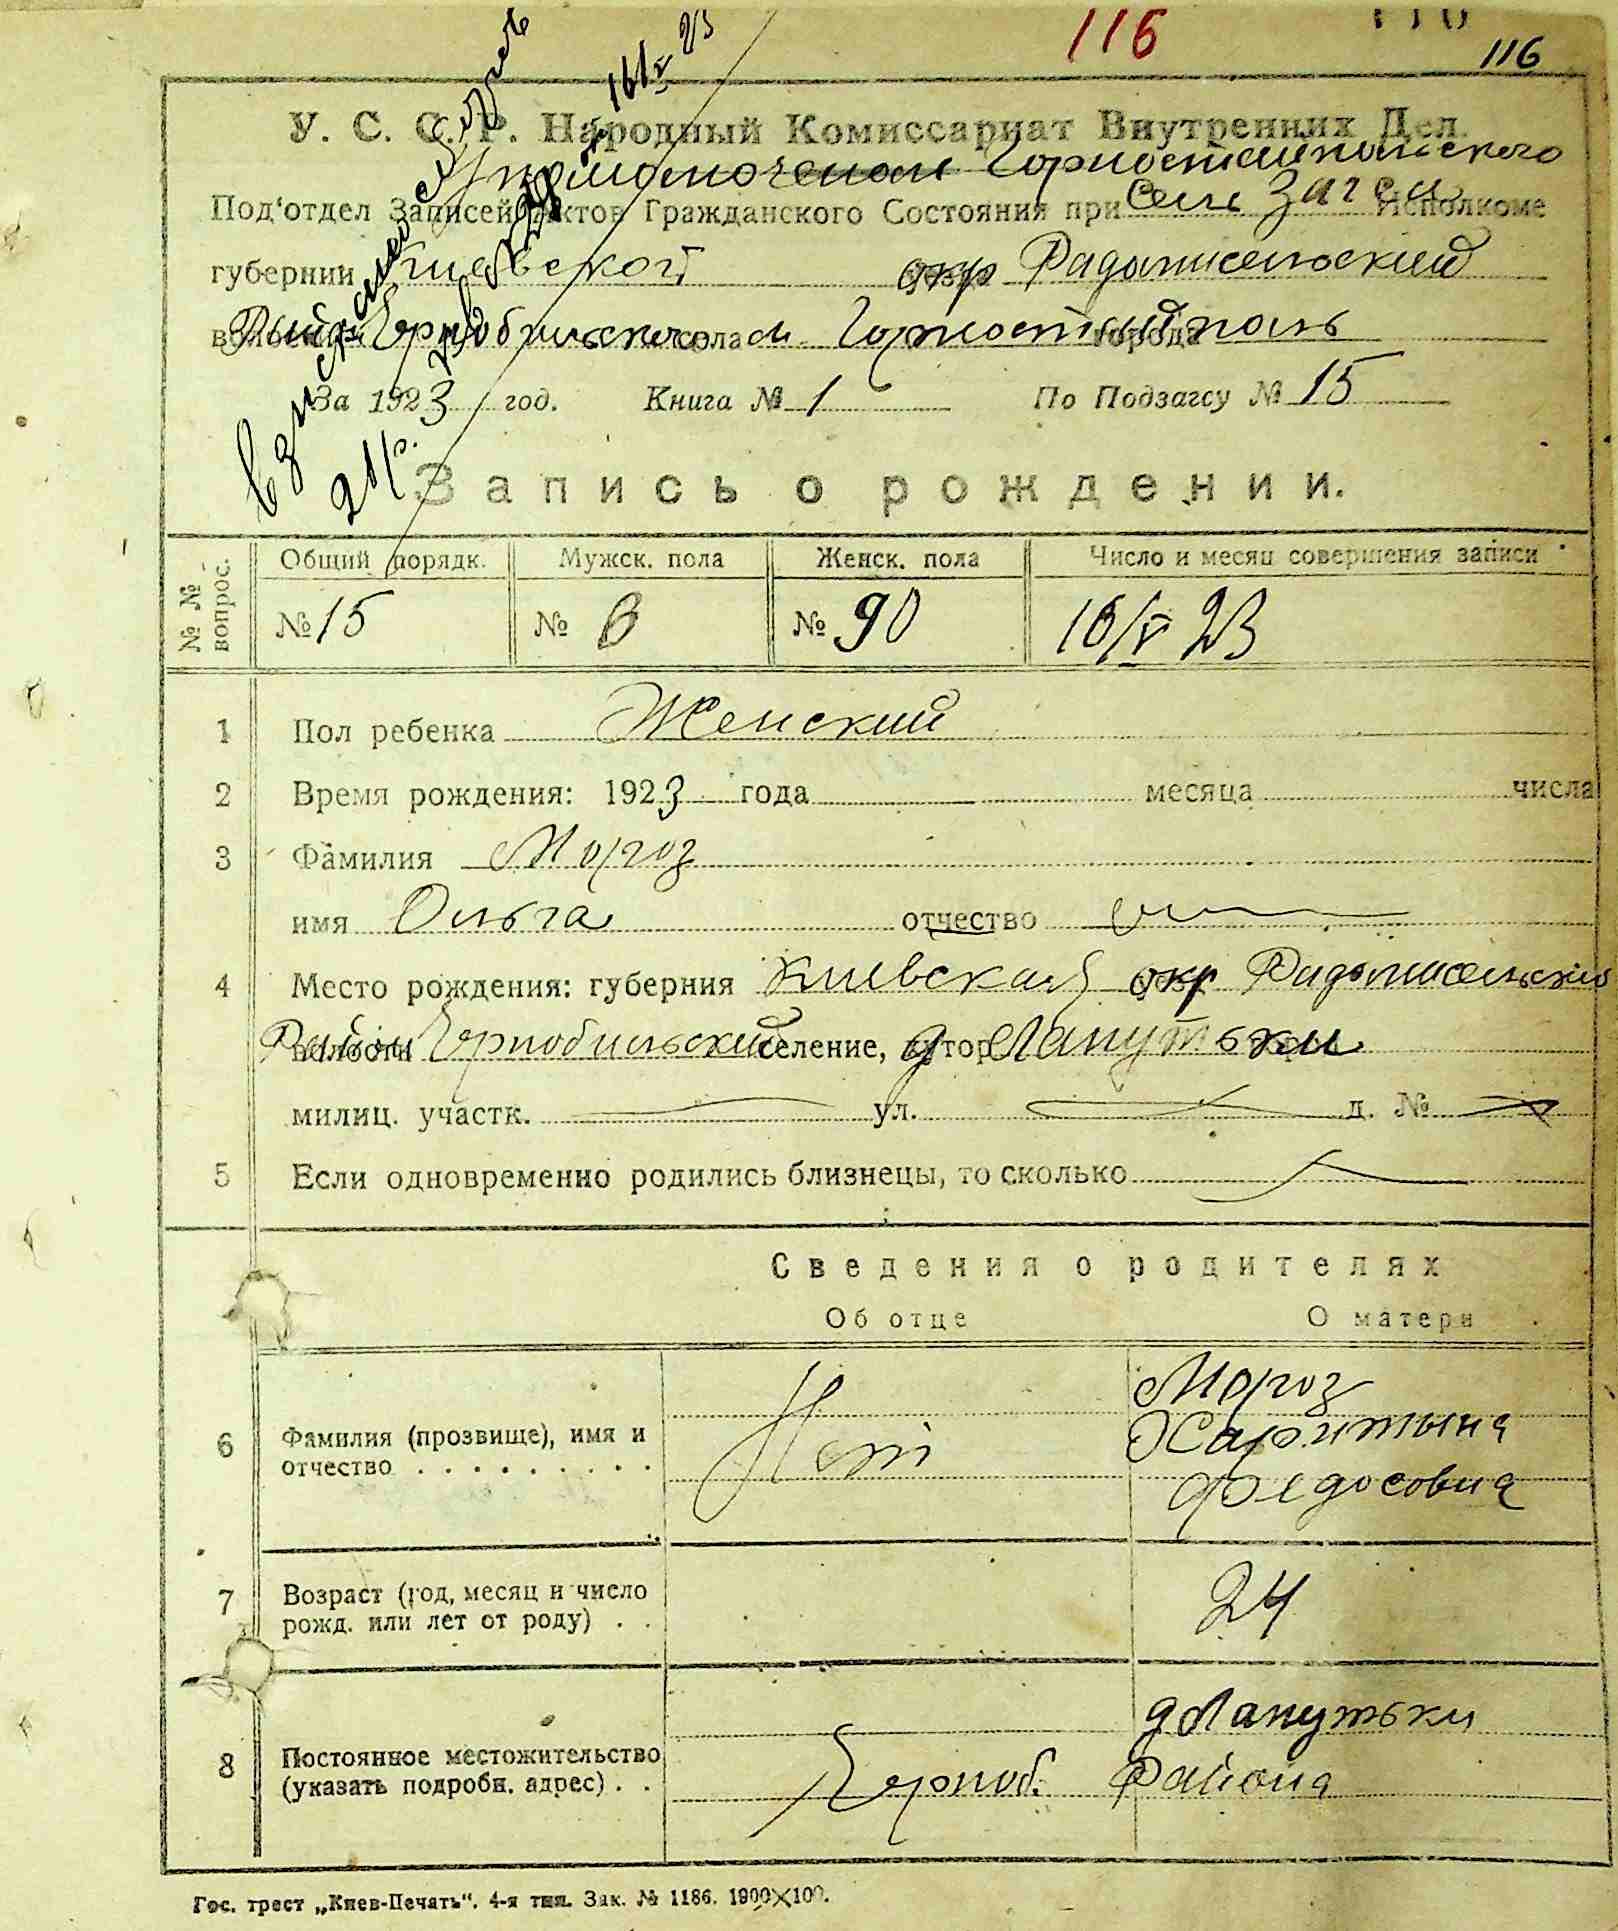 116
116
У. С. С. Р. Народный Комиссариат Внутренних Дел.
Горностайпольского
Под‘отдел Записей Актов Гражданского Состояния при Сель Загса Исполкоме
губернии Киевской окр Радомисельский
Район Чернобильский села м. Горностайполь города
За 1923 год. Книга № 1 По Подзагсу № 15
Запись о рождении.
№ № вопрос. Общий порядк. Мужск. пола Женск. пола Число и месяц совершения записи
№ 15 № 6 № 90 16/V 23
1 Пол ребенка Женский
2 Время рождения: 1923 года месяца числа
3 Фамилия Мороз
имя Ольга отчество
4 Место рождения: губерния Киевская окр Радомисельский
Район Чернобильский селение, хутор д Лапутьки
милиц. участк. ул. д. №
5 Если одновременно родились близнецы, то сколько
Сведения о родителях
Об отце О матери
6 Фамилия (прозвище), имя и
отчество . . . . . . . . . .
Нет
Мороз
Харитына
Федосовна
7 Возраст (год, месяц и число
рожд. или лет от роду) . .
24
8 Постоянное местожительство
(указать подробн. адрес) . .
д Лапутьки
Черноб. Района
Гос. трест „Киев-Печать“. 4-я тип. Зак. № 1186. 1900×100.